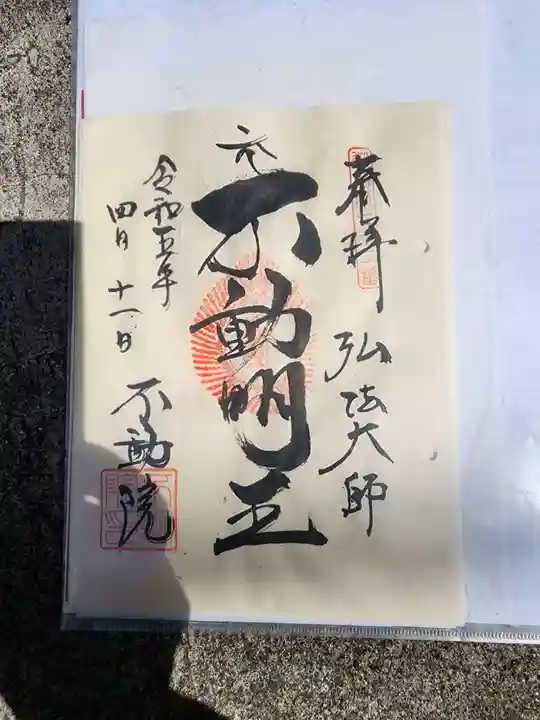 奉拝
弘法大師
不動明王
令和五年
四月十一日
不動院